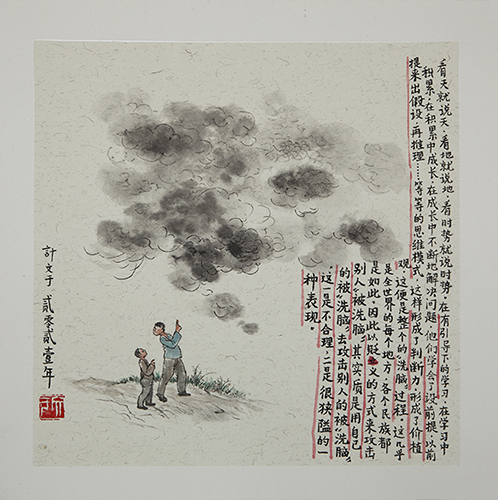 看天就说天，看地就说地，看时势就说时势，在有引导下的学习，在学习中
积累，在积累中成长，在成长中不断地解决问题，他们学会了设前提，以前
提来出假设，再推理……等等的思维模式，这样形成了判断力，形成了价值
观，这便是整个的洗脑过程，这几乎
是全世界的每个地方，各个民族都
是如此，因此以贬义的方式来攻击
别人“被洗脑”，其实质是用自己
的被“洗脑”，去攻击别人的被“洗脑”
，这一是不合理，二是很狭隘的一
种表现。
计文于 贰零贰壹年